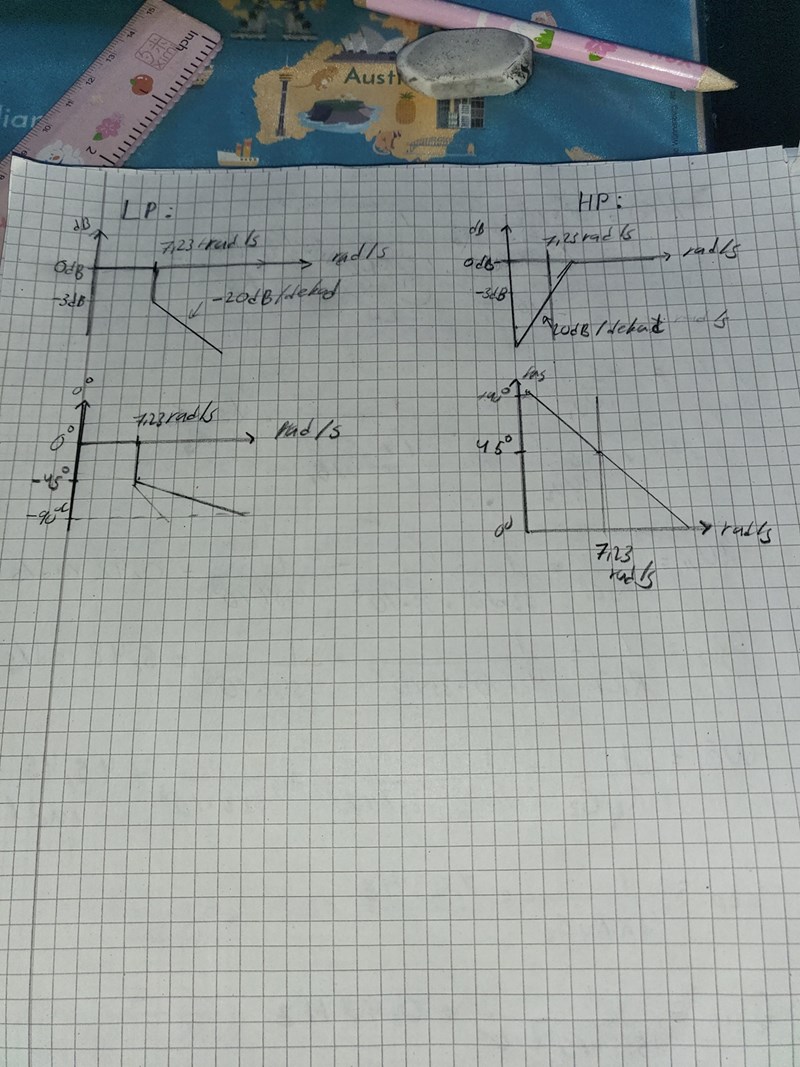 15
14
13
12
11
10
inch
2
Austr
LP:
dB
7,23 rad/s
rad/s
0dB
-3dB
-20dB/dekad
0°
7,23 rad/s
rad/s
0°
-45°
-90°
HP:
dB
7,23 rad/s
rad/s
0dB
-3dB
20dB/dekad
45°
0°
rad/s
7,23
rad/s